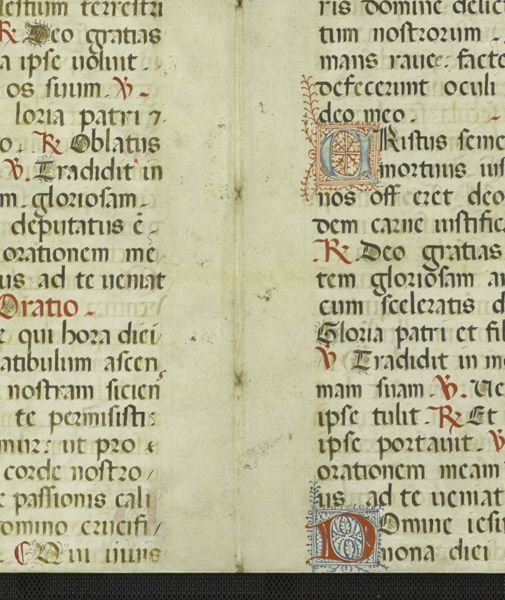 lestium terrestri
R Deo gratias
a ipse uoluit.
os suum. V.
loria patri
o. R Oblatus
V. Tradidit in
m. gloriosam.
deputatus ē.
orationem me
us ad te ueniat
Oratio.
e qui hora diei
atibulum ascen
nostram sicien
te permisisti:
mur: ut pro
corde nostro
e passionis cali
omino crucifi
Qui uiuis
ris domine delic
tum nostrorum.
mans raue: facte
defecerunt oculi
deo meo.
CRistus seme
mortuus ius
nos off eret deo
dem carne iustific
R Deo gratias
tem gloriosam an
cum sceleratis d
Gloria patri et fil
V Tradidit in m
mam suam. V. Ve
ipse tulit. R Et
ipse portauit. V
orationem meam
us ad te ueniat
DOmine iesu
nona diei